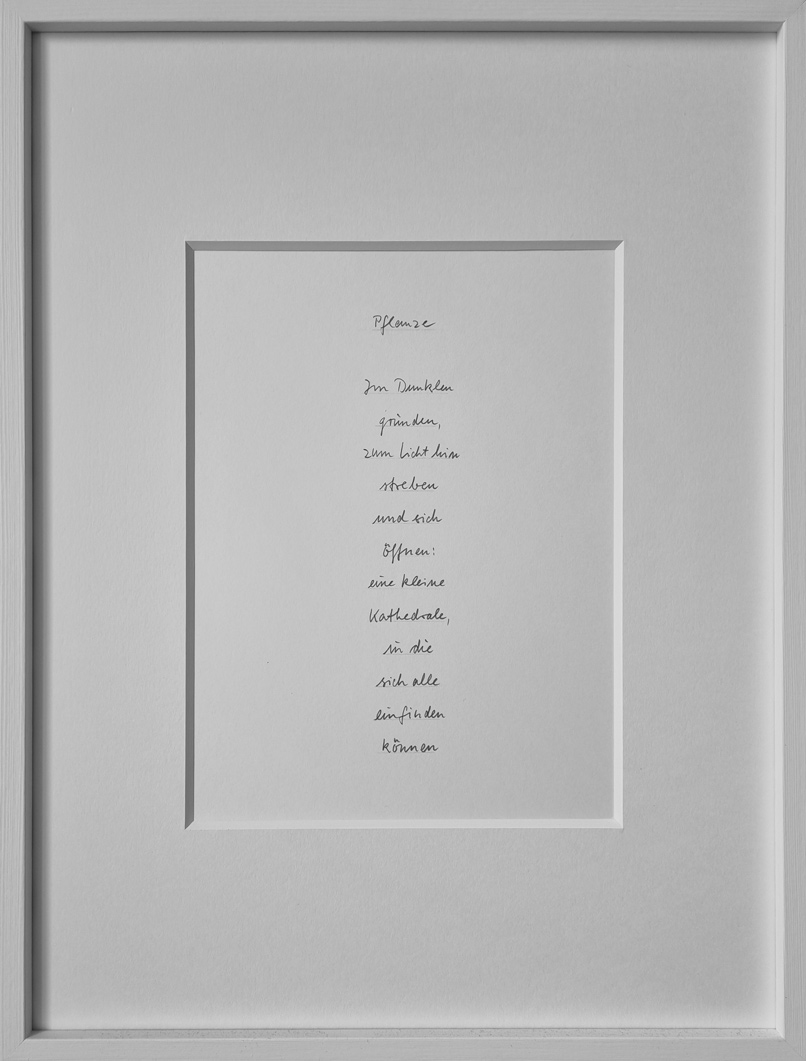 Pflanze
Im Dunklen
gründen,
zum Licht hin
streben
und sich
öffnen:
eine kleine
Kathedrale,
in die
sich alle
einfinden
können